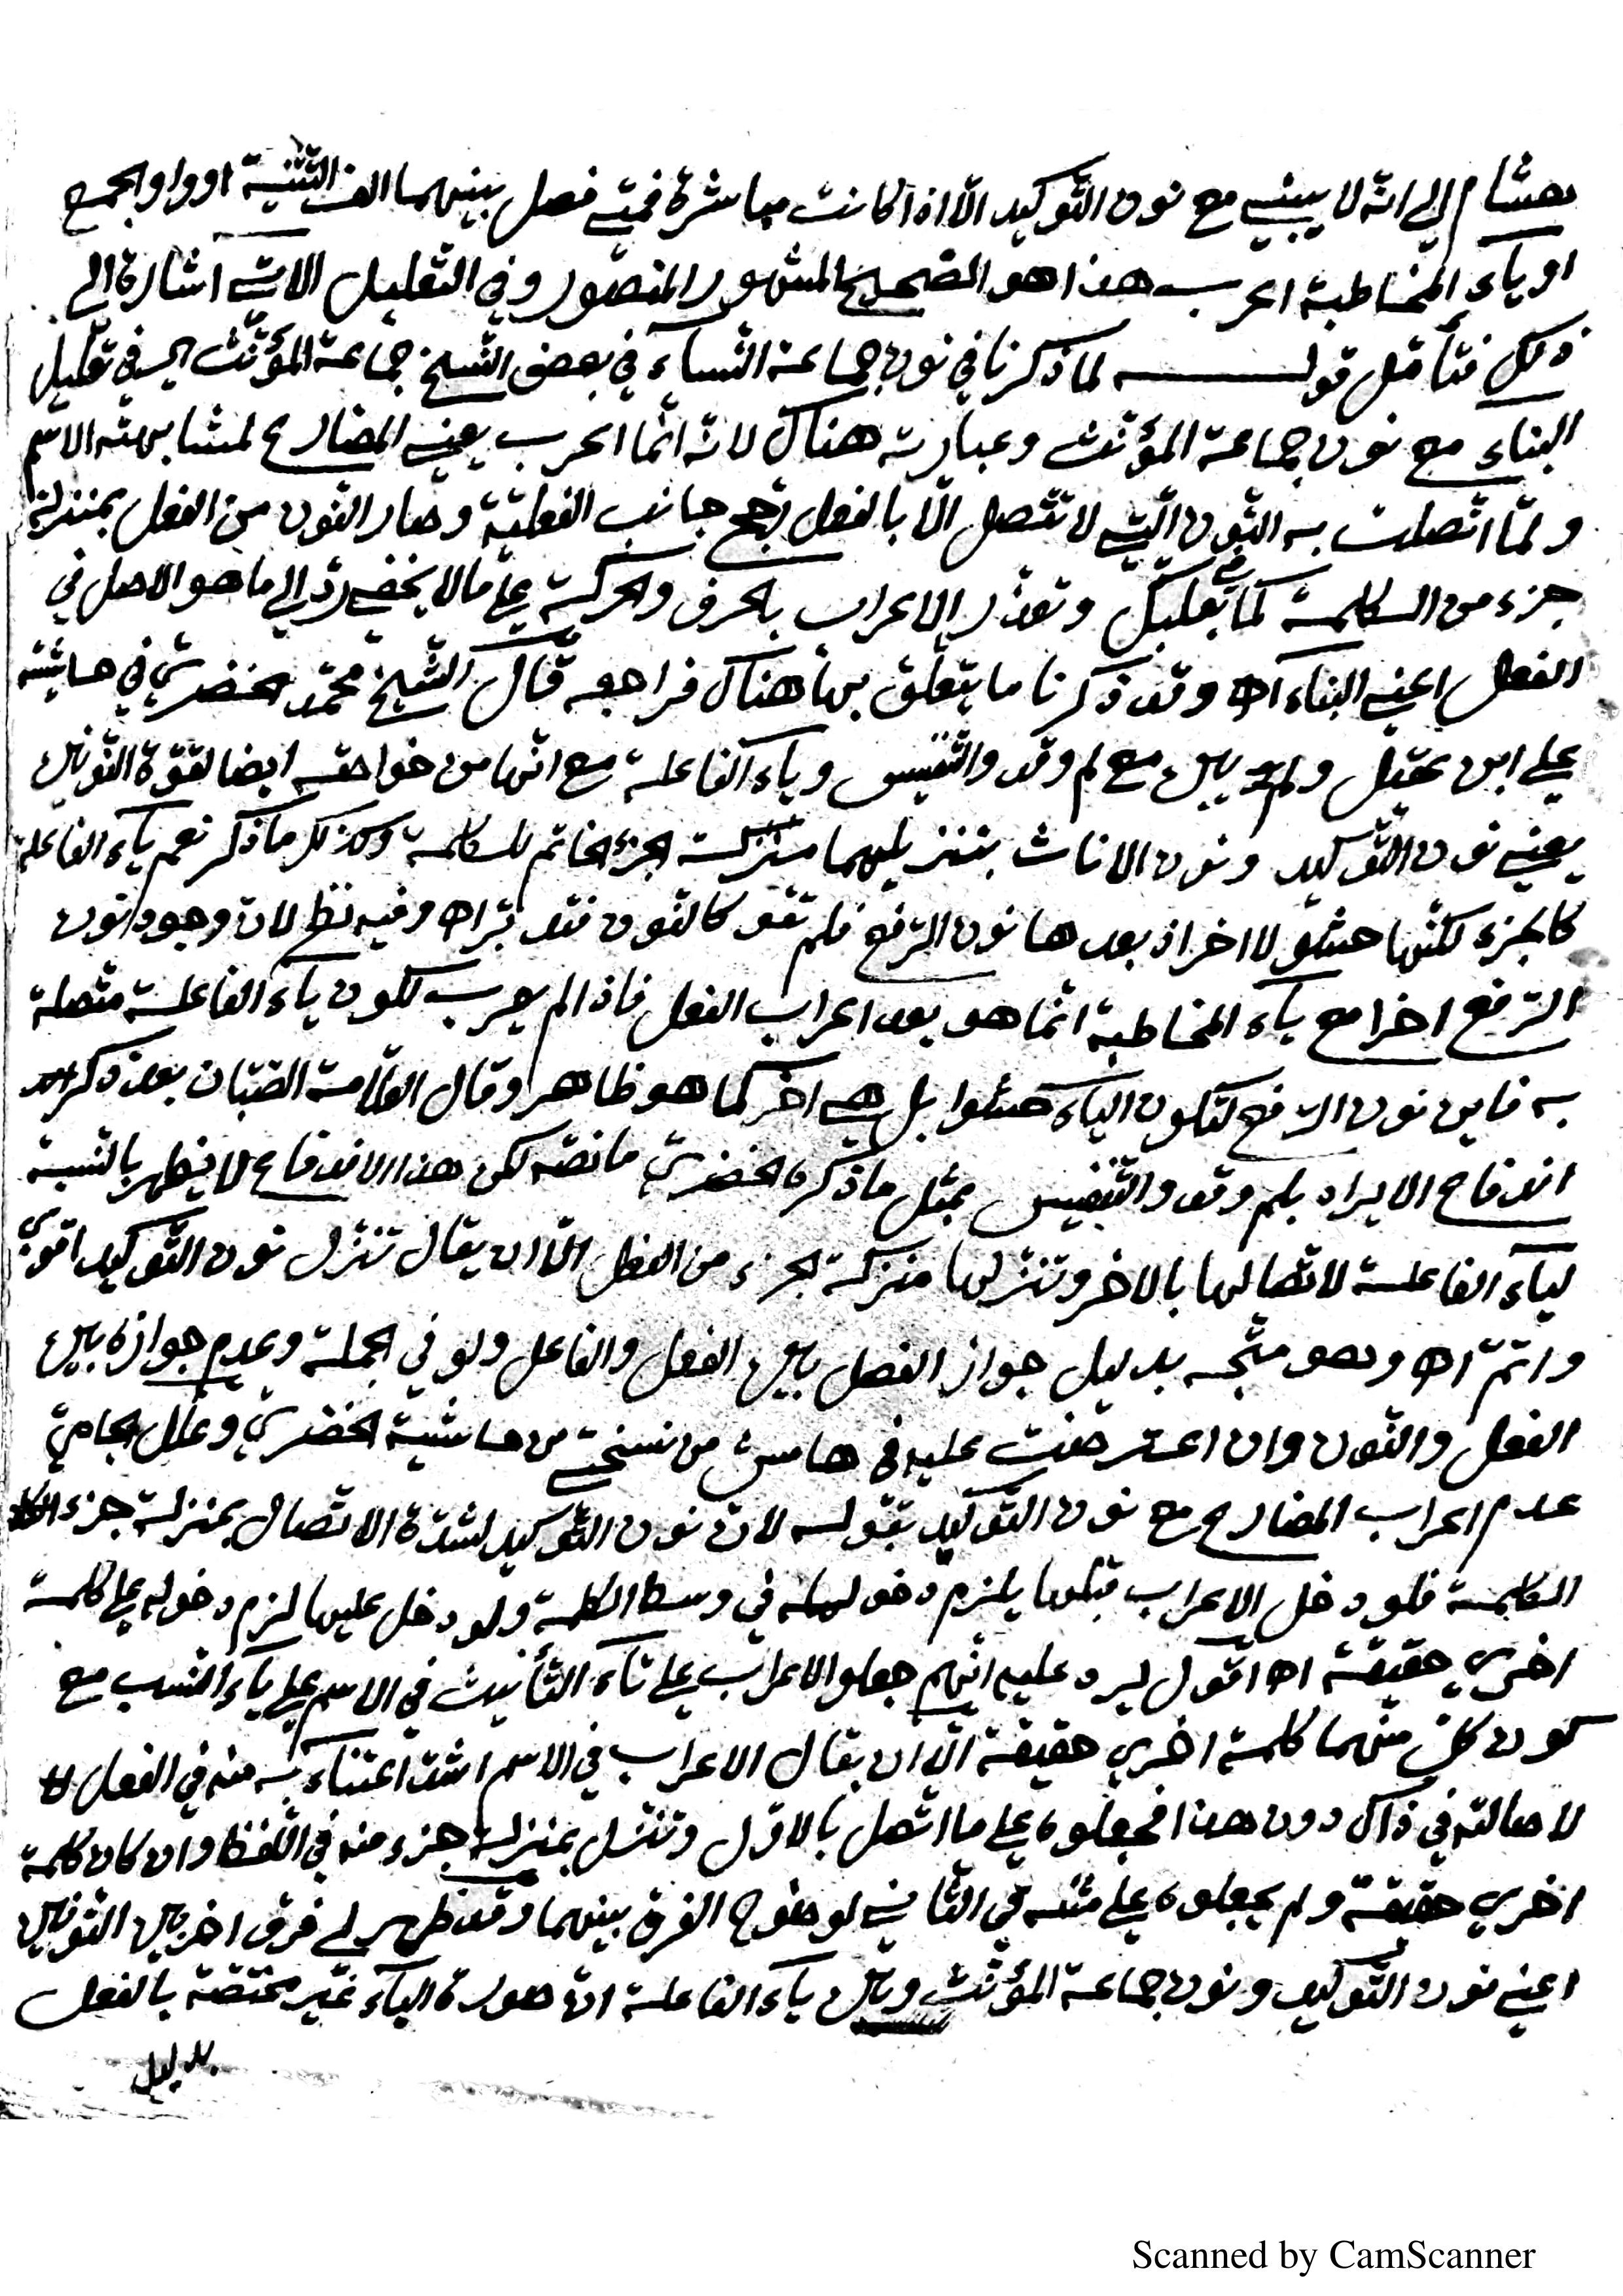 هشام إلى انه لا يبنى مع نون التّوكيد الّا اذا كانت مباشرة فمتى فصل بينهما الف التّثنية او واو الجمع
او ياء المخاطبة اعرب هذا هو الصّحيح المشهور المنصور وفي التعليل الاتي اشارة الى
ذلك فتأمّل قولـــه لما ذكرنا في نون جماعة النّساء في بعض النّسخ جماعة المؤنّث اي في تعليل
البناء مع نون جماعة المؤنّث وعبارته هناك لانّه انّما اعرب يعني المضارع لمشابهته الاسم
ولمّا اتّصلت به النّون الّتي لا تتّصل الّا بالفعل رجح جانب الفعليّة وصار النّون من الفعل بمنزلة
جزء من الكلمة كما في بعلبكّ وتعذّر الاعراب بالحرف والحركة على ما لا يخفى ردّ الى ما هو الاصل في
الفعل اعني البناء اه وقد ذكرنا ما يتعلّق بها هناك فراجعه قال الشّيخ محمّد الخضري في حاشيته
على ابن عقيل ولم يبن مع لم وقد والتّنفيس وياء الفاعلة مع انّها من خواصّه ايضا لقوّة النّونين
يعني نون التّوكيد ونون الاناث بتنزيلهما منزلة الجزء الخاتم للكلمة ولا كذلك ما ذكر نعم ياء الفاعلة
كالجزء لكنّها حشو لا اخر اذ بعدها نون الرّفع فلم تقو كالنّون فتدبّر اه وفيه نظر لانّ وجود نون
الرّفع اخرا مع ياء المخاطبة انّما هو بعد اعراب الفعل فاذا لم يعرب لكون ياء الفاعلة متّصلة
به فاين نون الرّفع لتكون الياء حشوا بل هي اخر كما هو ظاهر وقال العلّامة الصّبّان بعد ذكر
اندفاع الايراد بلم وقد والتّنفيس بمثل ما ذكره الخضري ما نصّه لكن هذا الاندفاع لا يظهر بالنّسبة
لياء الفاعلة لاتّصالها بالاخر وتنزّلها منزلة الجزء من الفعل الّا ان يقال تنزّل نون التّوكيد اقوى
واتمّ اه وهو متّجه بدليل جواز الفصل بين الفعل والفاعل ولو في الجملة وعدم جوازه بين
الفعل والنّون وان اعترضت عليه في هامش من نسختي من حاشية الخضري وعلّل الجامي
عدم اعراب المضارع مع نون التّوكيد بقوله لانّ نون التّوكيد لشدّة الاتّصال بمنزلة جزء
الكلمة فلو دخل الاعراب قبلها يلزم دخوله في وسط الكلمة ولو دخل عليها لزم دخوله على كلمة
اخرى حقيقة اه اقول يرد عليه انّهم جعلوا الاعراب على تاء التّأنيث في الاسم وعلى ياء النّسب مع
كون كلّ منهما كلمة اخرى حقيقة الّا ان يقال الاعراب في الاسم اشدّ اعتناء به منه في الفعل
لاصالته في ذاك دون هذا فجعلوه على ما اتّصل بالاوّل وتنزّل بمنزلة جزء منه في اللّفظ وان كان كلمة
اخرى حقيقة ولم يجعلوه على مثله في الثّاني لوضوح الفرق بينهما وقد ظهر لي فرق اخر بين النّونين
اعني نون التّوكيد ونون جماعة المؤنّث وبين ياء الفاعلة انّ صورة الياء غير مختصّة بالفعل
بدليل
Scanned by CamScanner